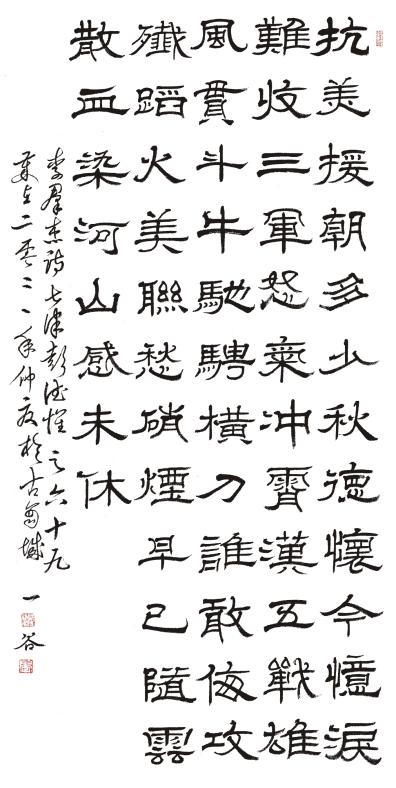 抗美援朝多少秋德懷今憶淚
難收三軍怒氣冲霄漢五戰雄
風貫斗牛馳騁橫刀誰敢侮攻
殲蹈火美聯愁硝煙早已隨雲
散血染河山感未休
李群詩七律彭德懷之六十九
歲在二零二一年仲夏於古城 一谷